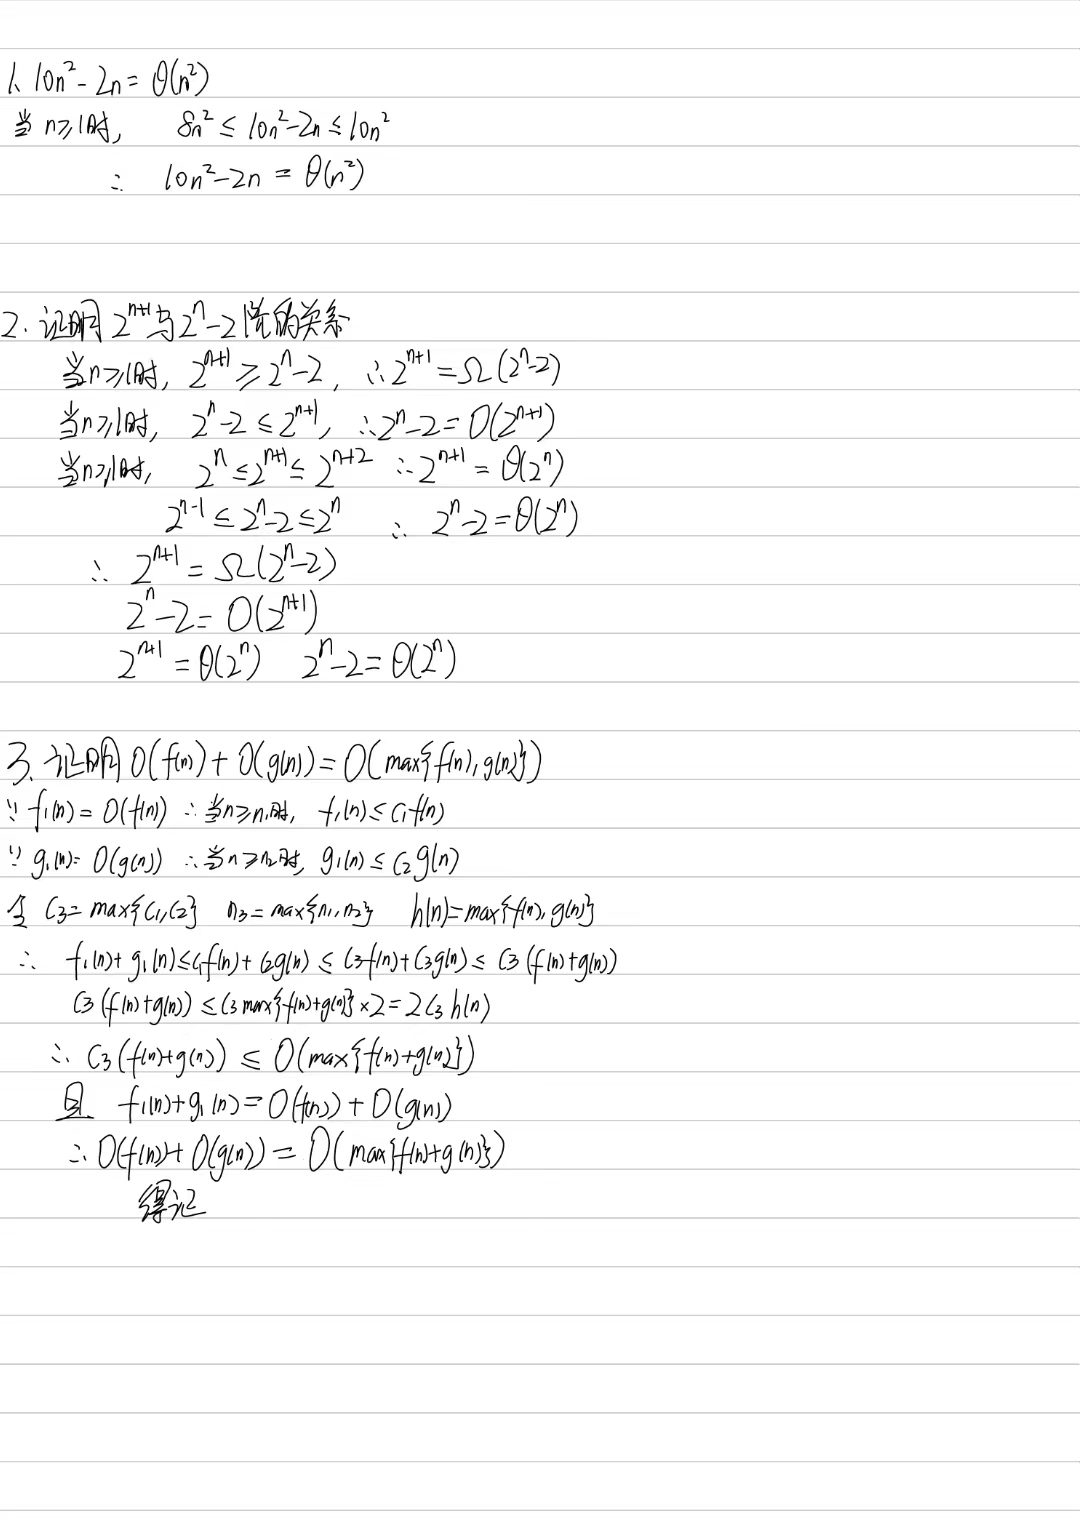 1、10n²-2n=θ(n²)
当n≥1时, 8n²≤10n²-2n≤10n²
∴ 10n²-2n=θ(n²)
2.证明2ⁿ⁺¹与2ⁿ-2阶的关系
当n≥1时, 2ⁿ⁺¹≥2ⁿ-2, ∴2ⁿ⁺¹=Ω(2ⁿ-2)
当n≥1时, 2ⁿ-2≤2ⁿ⁺¹, ∴2ⁿ-2=O(2ⁿ⁺¹)
当n≥1时, 2ⁿ≤2ⁿ⁺¹≤2ⁿ⁺² ∴2ⁿ⁺¹=θ(2ⁿ)
2ⁿ⁻¹≤2ⁿ-2≤2ⁿ ∴ 2ⁿ-2=θ(2ⁿ)
∴ 2ⁿ⁺¹=Ω(2ⁿ-2)
2ⁿ-2=O(2ⁿ⁺¹)
2ⁿ⁺¹=θ(2ⁿ) 2ⁿ-2=θ(2ⁿ)
3.证明O(f(n))+O(g(n))=O(max{f(n),g(n)})
∵f₁(n)=O(f(n)) ∴当n≥n₁时, f₁(n)≤c₁f(n)
∵g₁(n)=O(g(n)) ∴当n≥n₂时, g₁(n)≤c₂g(n)
令 C₃=max{C₁,C₂} n₃=max{n₁,n₂} h(n)=max{f(n),g(n)}
∴ f₁(n)+g₁(n)≤c₁f(n)+c₂g(n)≤C₃f(n)+C₃g(n)≤C₃(f(n)+g(n))
C₃(f(n)+g(n))≤C₃max{f(n)+g(n)}×2=2C₃h(n)
∴C₃(f(n)+g(n))≤O(max{f(n)+g(n)})
且 f₁(n)+g₁(n)=O(f(n))+O(g(n))
∴O(f(n))+O(g(n))=O(max{f(n)+g(n)})
得记